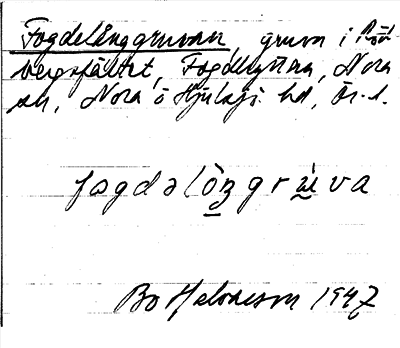 Fogdelånggruvan, gruva i Pers-
bergsfältet, Fogdhyttan, Nora
sn, Nora o Hjulsjö hd, Ör. l.
fogdəlòŋgrùva
Bo Helverson 1947